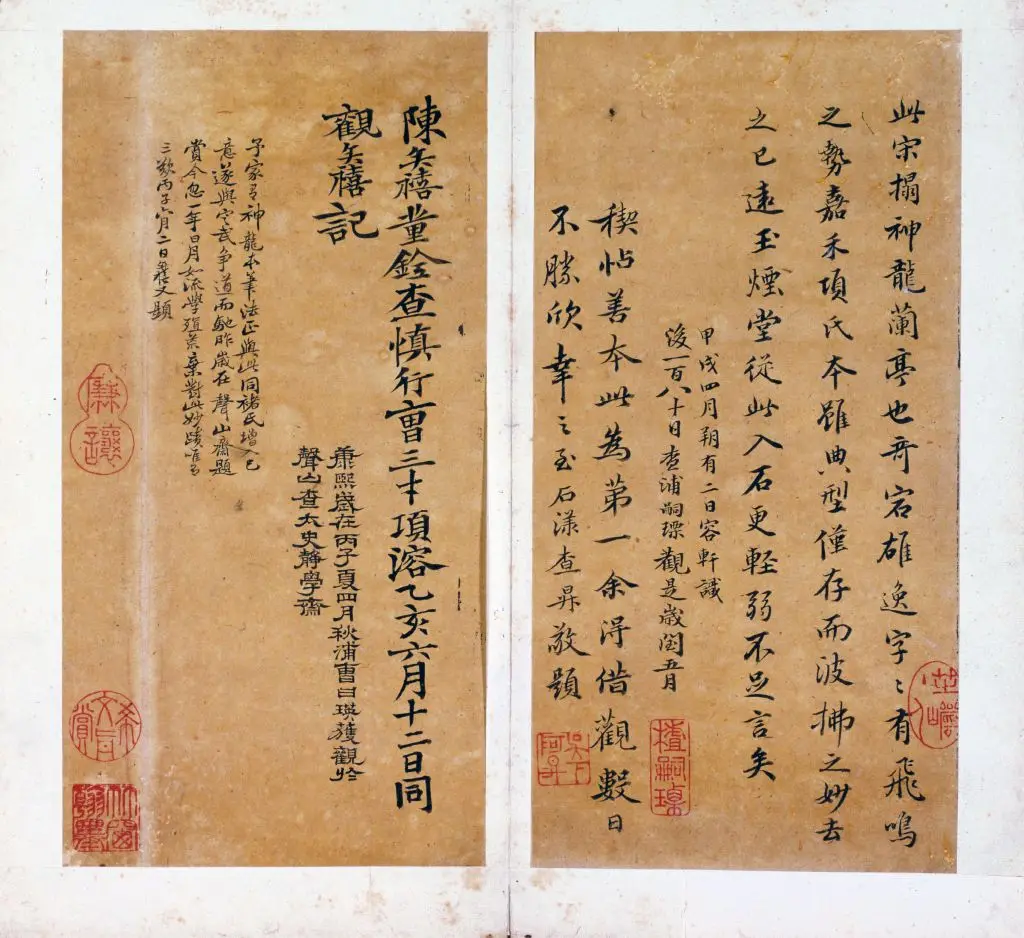 此宋搨神龍蘭亭也奇宕雄逸字〻有飛鳴
之勢嘉禾項氏本雖典型僅存而波拂之妙去
之已遠玉煙堂從此入石更輕弱不足言矣
甲戌四月朔有二日容軒識
後一百八十日查浦嗣瑮觀是歲閏五月
稧帖善本此為第一余得借觀數日
不勝欣幸之至石漾查昇敬題
查嗣瑮
陳奕禧童銓查慎行曹三才項溶乙亥六月十二日同
觀奕禧記
康熙歲在丙子夏四月秋浦曹曰瑛獲觀於
聲山查太史靜學齋
予家有神龍本筆法正與此同褚氏增入己
意遂與定武爭道而馳昨歲在聲山齋題
賞今忽一年日月如流學殖荒棄對此妙蹟唯有
三歎丙子六月二日奕禧又題
廉讓